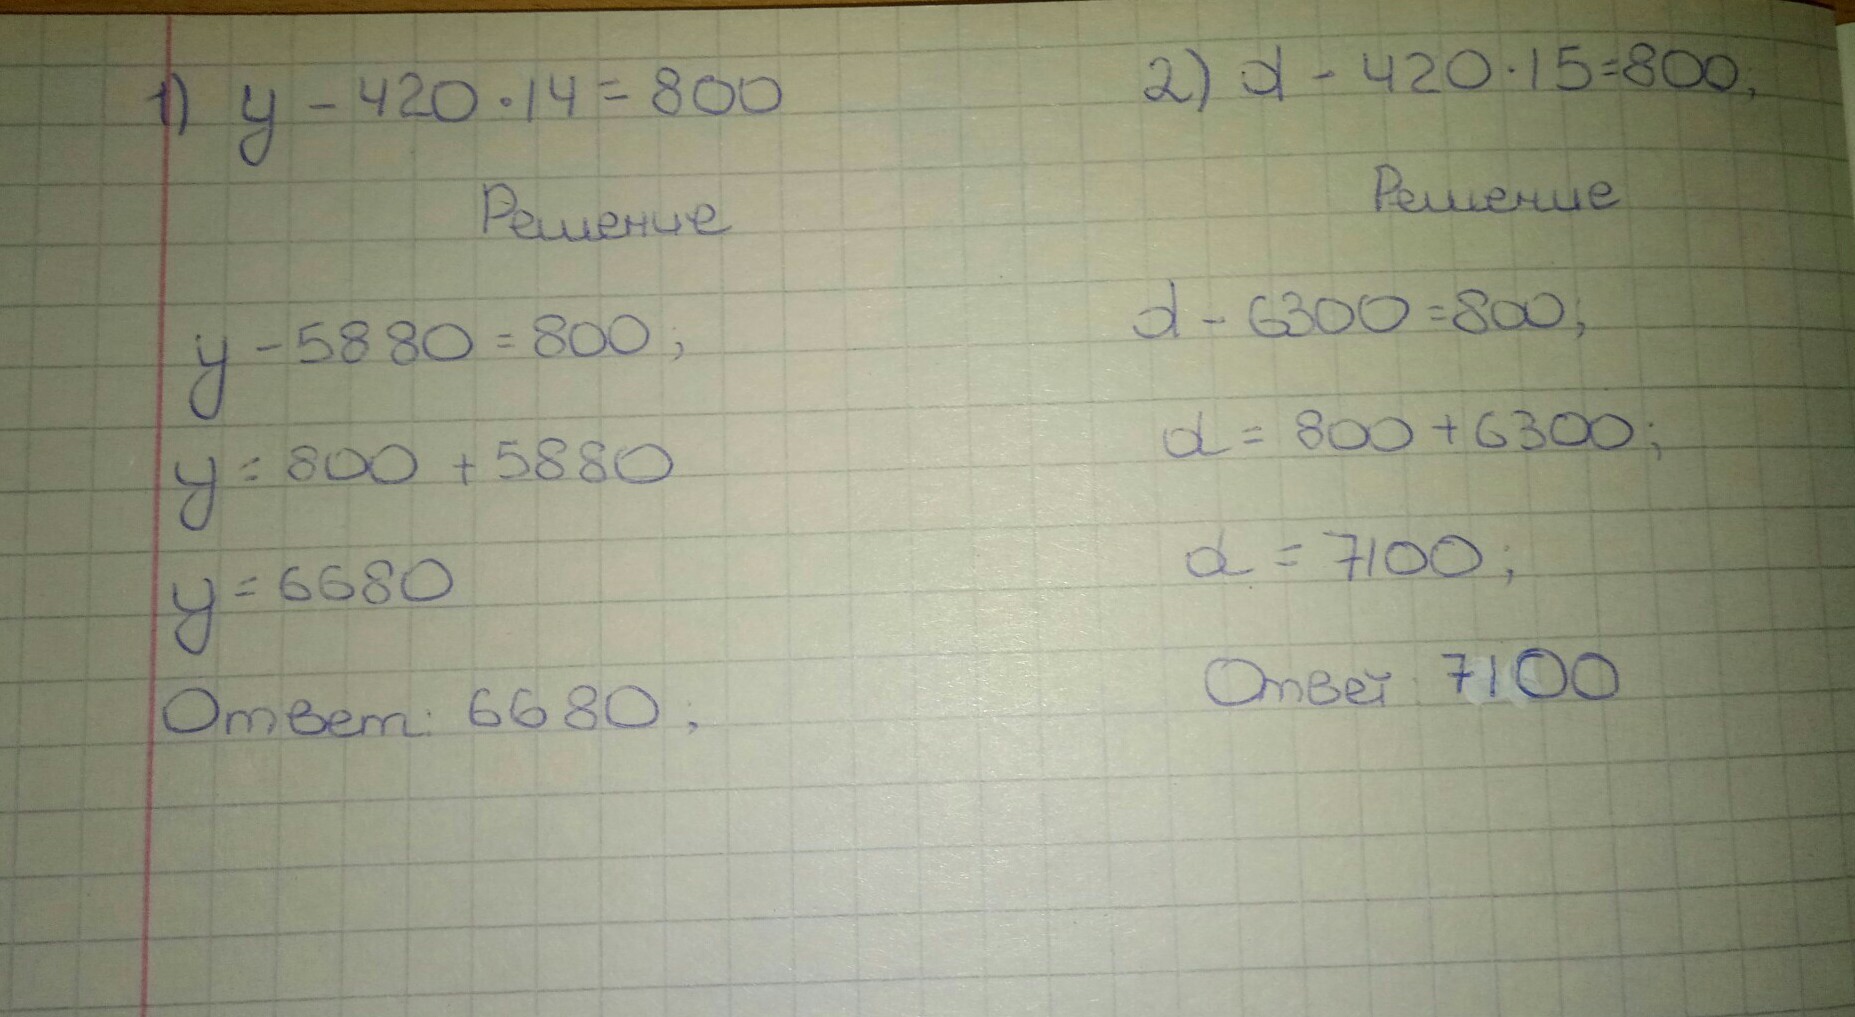 1) y - 420 · 14 = 800
Решение
y - 5880 = 800;
y = 800 + 5880
y = 6680
Ответ: 6680;
2) d - 420 · 15 = 800;
Решение
d - 6300 = 800;
d = 800 + 6300;
d = 7100;
Ответ: 7100